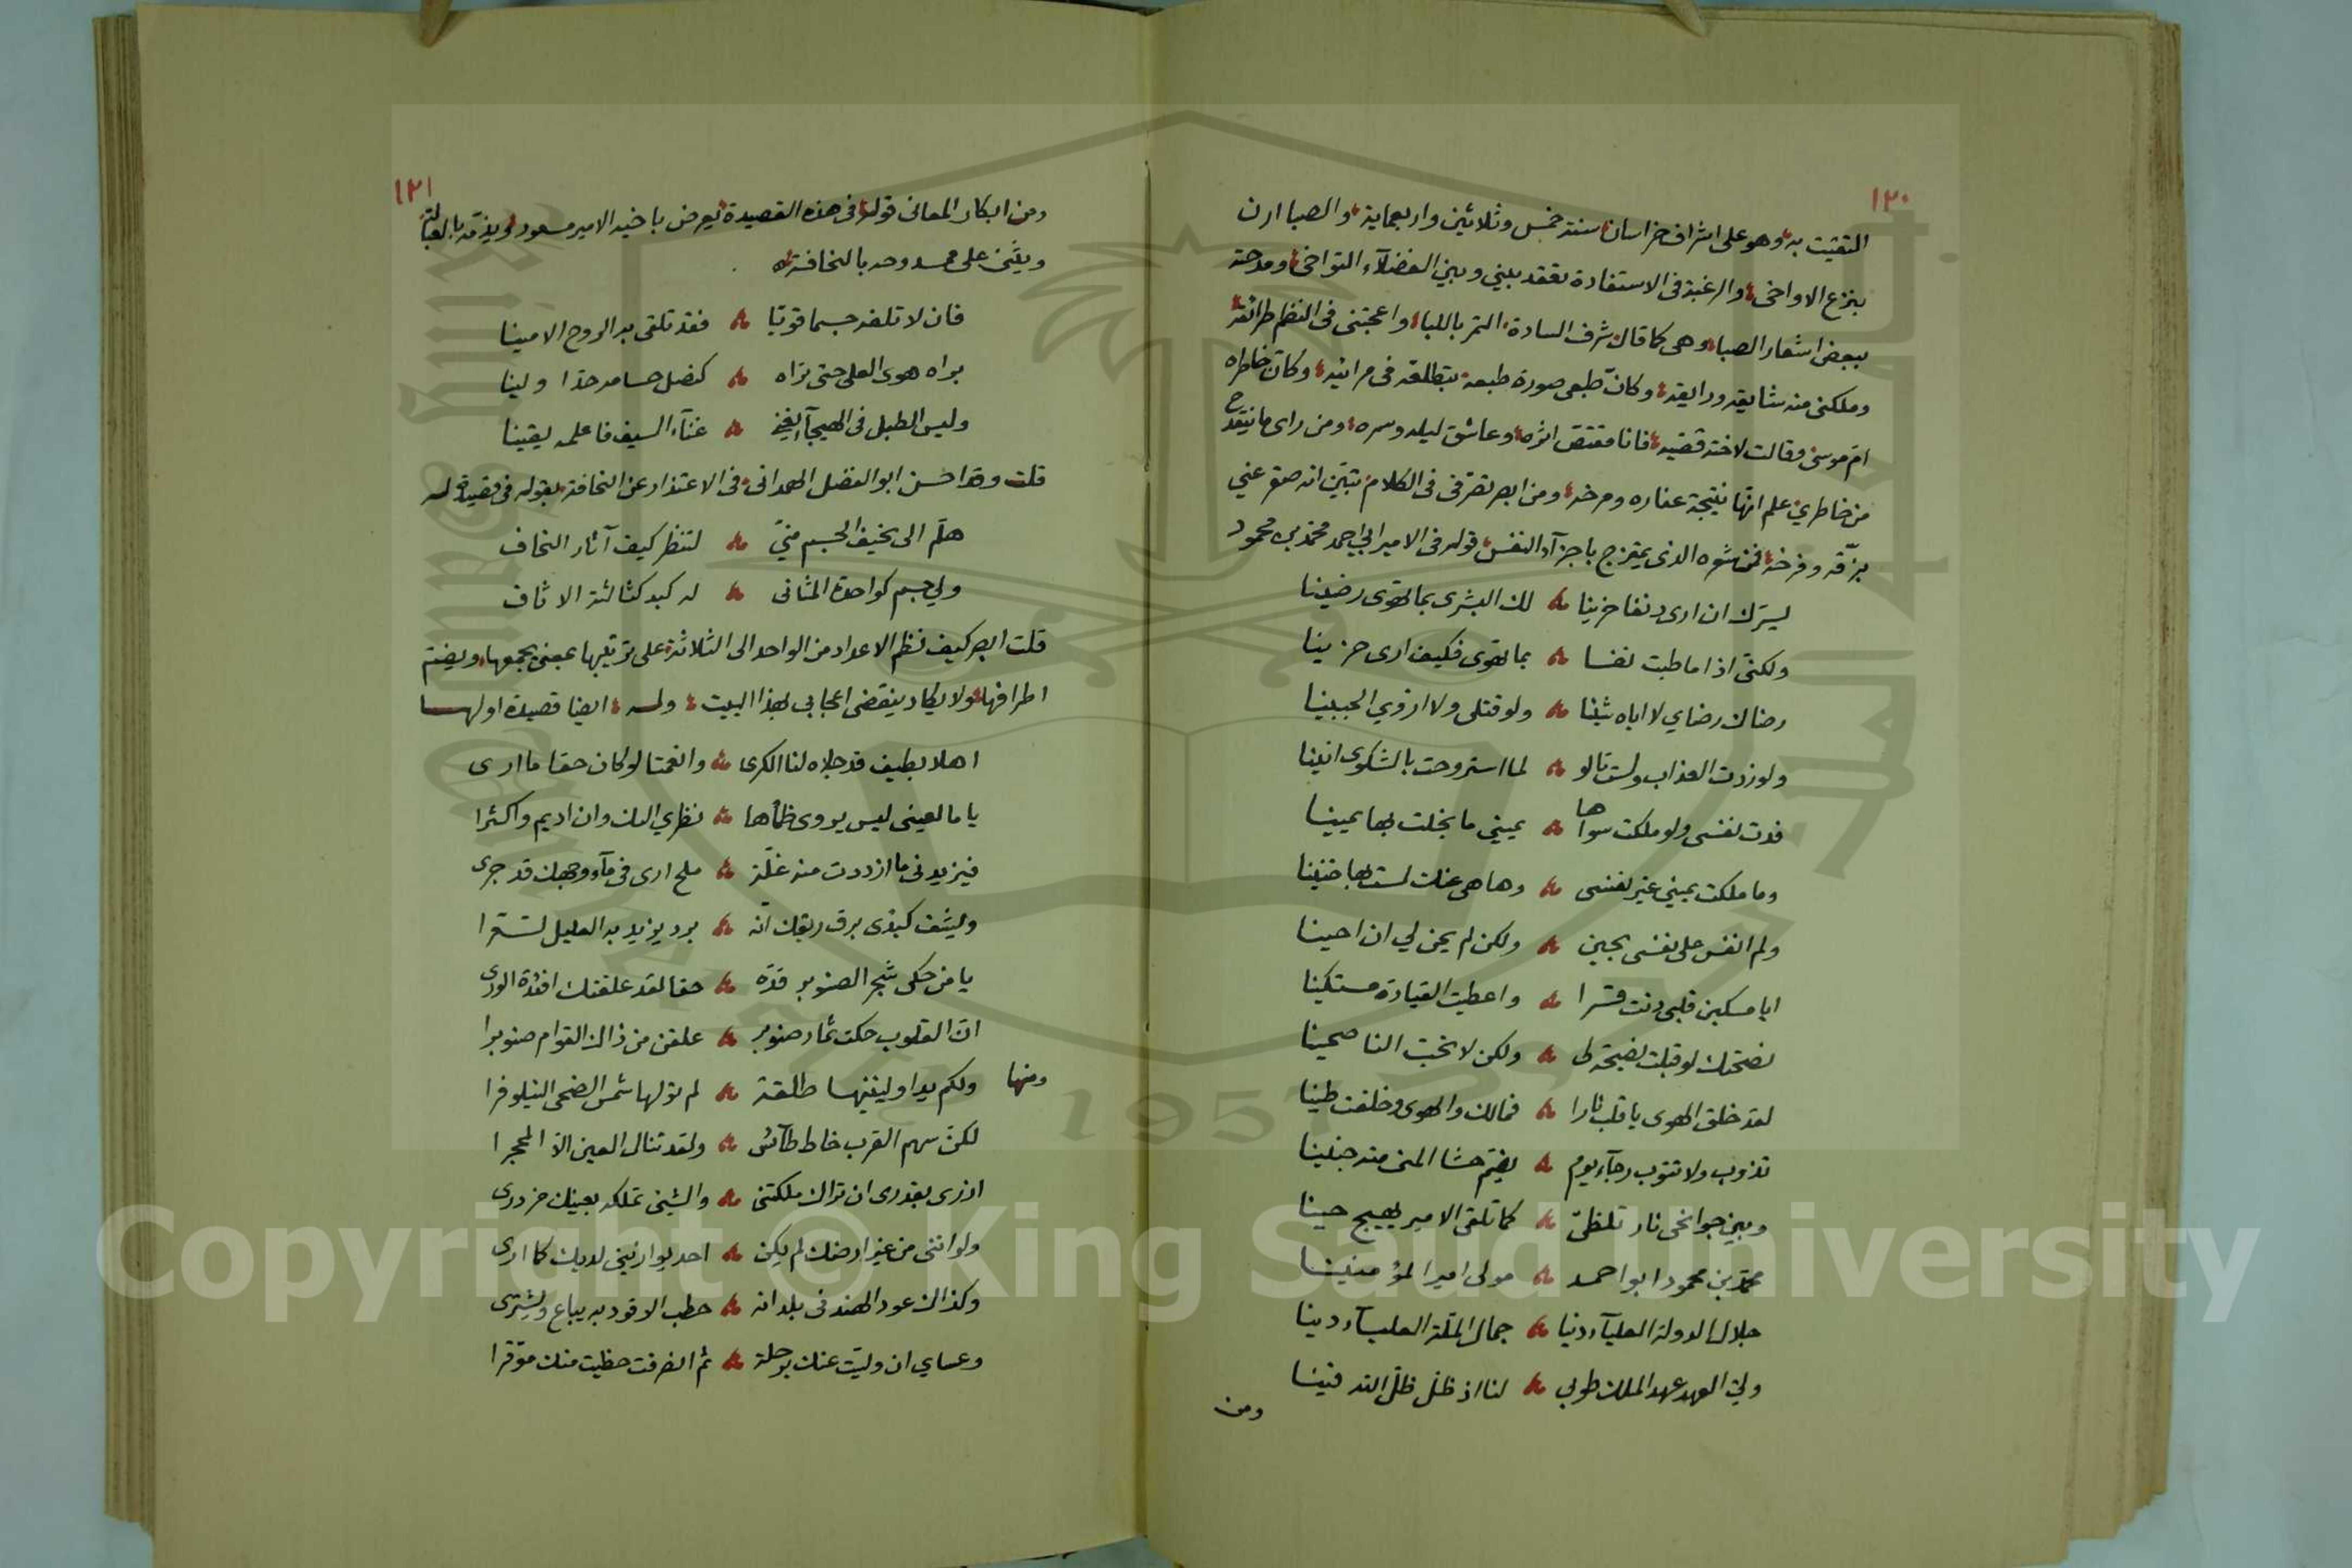 ١٢٠
التقيت به وهو على اشراف خراسان سنة خمس وثلاثين واربعماية والصبا ارن
ينزع الاواخى والرغبة فى الاستفادة تعقد بينى وبين الفضلآء التواخى ومدحته
ببعض اشعار الصبا وهى كما قال شرف السادة التمر باللبا واعجبنى فى النظم طرائقه
وملكنى منه شايقه ورايقه وكانّ طبعى صورة طبعه يتطلعه فى مرائيه وكان خاطره
ام موسى وقالت لاخته قصّيه فانا مقتصّ اثره وعاشق ليله وسمره ومن راى ما نتقدح
من خاطري علم انّها نتيجة عفاره ومرخه ومن ابصر تصرفى فى الكلام تبيّن انه صقر عني
بزقّه وفرخه فمن شعره الذى يمتزج باجزآء النفس قوله فى الامير ابي احمد محمد بن محمود
يسرّك ان ارى دنفا حزينا لك البشرى بما تهوى رضينا
ولكنّى اذا ما طبت نفسا بما تهوى فكيف ارى حزينا
رضاك رضاي لا اباه شيئا ولو قتلى ولا ارۤوي الجبينا
ولو زدت العذاب ولست تالو لما استروحت بالشكوى انينا
فدت نفسى ولو ملكت سواها يمينى ما بخلت بها يمينا
وما ملكت يميني غير نفسى وها هى عنك لست بها ضنينا
ولم انفس على نفسى بحين ولكن لم يحن لي ان احينا
ايا مسكين قلبى دنت قسرا واعطيت القيادة مستكينا
نصحتك لو قبلت نصيحة لى ولكن لا تحبّ الناصحينا
لقد خلق الهوى يا قلب نارا فمالك والهوى وخلقت طينا
تذوب ولا تتوب رجآء يوم يضمّ حشا المنى منه جنينا
وبين جوانحى نار تلظّى كما تلقى الامير يهيج حينا
محمد بن محمود ابو احمد مولى امير المؤمنينا
جلال الدولة العليآء دنيا جمال الملّة العليآء دينا
وليّ العهد عهد الملك طوبى لنا اذ ظلّ ظلّ الله فينا
ومن
١٢١
ومن ابكار المعانى قوله فى هذه القصيدة يعرض باخيه الامير مسعود ويذمّه بالعبالة
ويثنى على ممدوحه بالنحافة
فان لا تلفه جسما قويّا فقد تلقى به الروح الامينا
براه هوى العلى حتى تراه كنصل حسامه حدّا ولينا
وليس الطبل فى الهيجآ يغنى غنآء السيف فاعلمه يقينا
قلت وقد احسن ابو الفضل الهمدانى فى الاعتذار عن النحافة بقوله فى قصيدة له
هلّم الى نحيف الجسم منيّ لتنظر كيف آثار النحاف
ولي جسم كواحدة المثانى له كبد كثالثة الاثاف
قلت ابصر كيف نظم الاعداد من الواحد الى الثلاثة على ترتيبها بمعنى يجمعها ويضم
اطرافها ولا يكاد ينقضى اعجابى بهذا البيت وله ايضا قصيدة اولها
اهلا بطيف قد جلاه لنا الكرى وانعمتا لو كان حقا ما ارى
يا ما لعينى ليس يروى ظمأها نظري اليك وان اديم واكثرا
فيزيدنى ما ازددت منه غلّة ملح ارى فى مآء وجهك قد جرى
وليشف كبدى برق ريقك انّه برد يزيد به الغليل تسعّرا
يا من حكى شجر الصنوبر قدّه حقا لقد علقتك افئدة الورى
انّ القلوب حكت ثمار صنوبر علقن من ذاك القوام صنوبرا
ومنها ولكم يد اوليتنيها طلقة لم تولها شمس الضحى النيلوفرا
لكنّ سهم القرب خاط طآئش ولقد تنال العين الاّ المحجرا
ازرى بقدرى ان تراك ملكتنى والشئ تملكه بعينك مزدرى
ولو اننى من غير ارضك لم يكن احد يوازينى لديك كما ارى
وكذاك عود الهند فى بلدانه حطب الوقود به يباع ويشترى
وعساي ان ولّيت عنك برحلة ثم انصرفت حظيت منك موقّرا
Copyright © King Saud University
1957